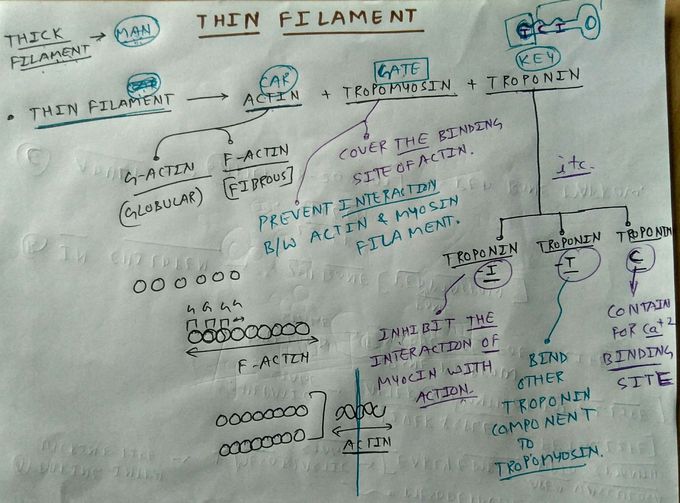 THIN FILAMENT
THICK FILAMENT → MAN
T C I
CAR
GATE
KEY
• THIN FILAMENT → ACTIN + TROPOMYOSIN + TROPONIN
G-ACTIN
(GLOBULAR)
F-ACTIN
[FIBROUS]
COVER THE BINDING
SITE OF ACTIN.
PREVENT INTERACTION
B/W ACTIN & MYOSIN
FILAMENT.
itc.
TROPONIN
I
TROPONIN
T
TROPONIN
C
INHIBIT THE
INTERACTION OF
MYOCIN WITH
ACTION.
BIND
OTHER
TROPONIN
COMPONENT
TO
TROPOMYOSIN.
CONTAIN
FOR Ca+2
BINDING
SITE
G G G G
F-ACTIN
ACTIN